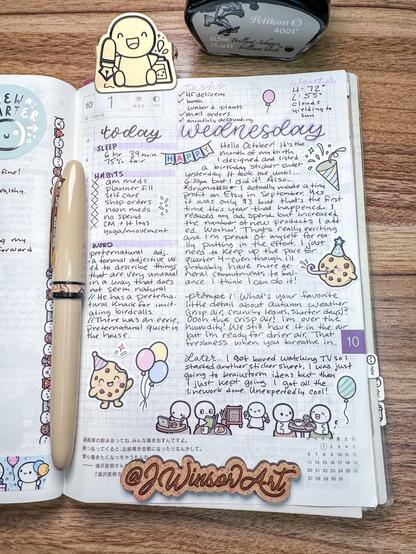 Pelikan
4001
Brilliant-Schwarz
brilliant black
10
1
水
4R delivery
water 2 plants
mail orders
monthly accounting
H: 72°
L: 55°
Clouds
yielding to
sun
today
wednesday
SLEEP
6 hr 39 min
75% fair
HABITS
am meds
planner fill
self care
shop orders
noon meds
no spend
CM + IH
yoga/movement
WORD
preternatural adj.
a formal adjective us
ed to describe things
that are very unusual
in a way that does
not seem natural
// He has a preterna-
tural knack for imit-
ating birdcalls
// There was an eerie,
preternatural quiet in
the house.
HAPPY
Hello October! It's the
month of my birth.
I designed and listed
a birthday sticker sheet
yesterday. It took me until
6:30pm but I did it! Also...
*drumroll* I actually made a tiny
profit on Etsy in September. Yes
it was only $3 but that's the first
time this year that happened. I
reduced my ad spend but increased
the number of new products I add
ed. Woohoo! That's really exciting
and I'm proud of myself for re
lly putting in the effort. I just
need to keep up the pace for
Quarter 4 - even though I'll
probably have more ge-
neral commitments to bal-
ance. I think I can do it!
prompt 1: What's your favorite
little detail about autumn weather
(crisp air, crunchy leaves, shorter days)?
Ooh the crisp air! I'm over the
humidity! We still have it in the air
but I'm ready for drier air. That
freshness when you breathe in.
Later... I got bored watching TV so I
started another sticker sheet. I was just
going to brainstorm ideas but then
I just kept going. I got all the
linework done. Unexpectedly cool!
10
@JWinsorArt